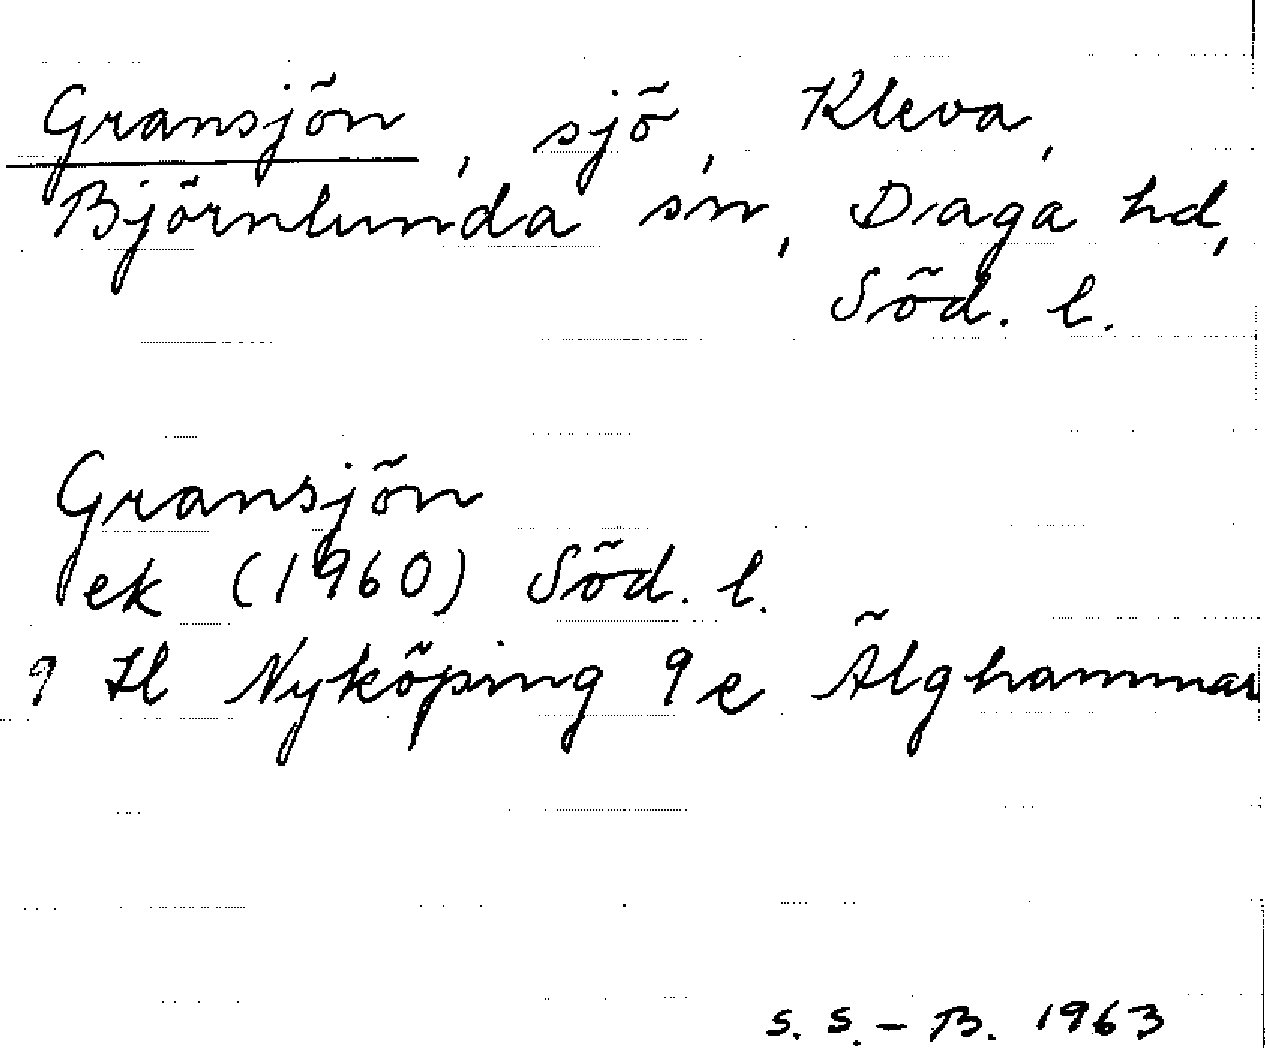 Gransjön, sjö, Kleva,
Björnlunda sn, Daga hd,
Söd. l.
Gransjön
ek (1960) Söd. l.
9 H Nyköping 9 e Älghammar
S. S. - B. 1963